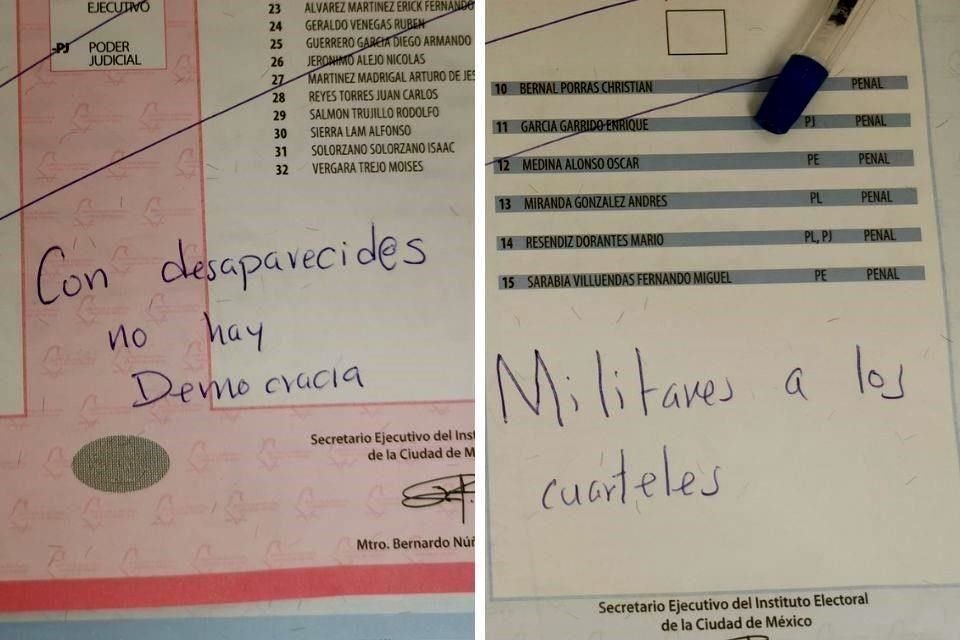 EJECUTIVO
-PJ PODER
JUDICIAL
23 ALVAREZ MARTINEZ ERICK FERNANDO
24 GERALDO VENEGAS RUBEN
25 GUERRERO GARCIA DIEGO ARMANDO
26 JERONIMO ALEJO NICOLAS
27 MARTINEZ MADRIGAL ARTURO DE JES
28 REYES TORRES JUAN CARLOS
29 SALMON TRUJILLO RODOLFO
30 SIERRA LAM ALFONSO
31 SOLORZANO SOLORZANO ISAAC
32 VERGARA TREJO MOISES
Con desaparecid@s
no hay
Democracia
Secretario Ejecutivo del Inst
de la Ciudad de M
Mtro. Bernardo Núñ
10 BERNAL PORRAS CHRISTIAN PENAL
11 GARCIA GARRIDO ENRIQUE PJ PENAL
12 MEDINA ALONSO OSCAR PE PENAL
13 MIRANDA GONZALEZ ANDRES PL PENAL
14 RESENDIZ DORANTES MARIO PL, PJ PENAL
15 SARABIA VILLUENDAS FERNANDO MIGUEL PE PENAL
Militares a los
cuarteles
Secretario Ejecutivo del Instituto Electoral
de la Ciudad de México